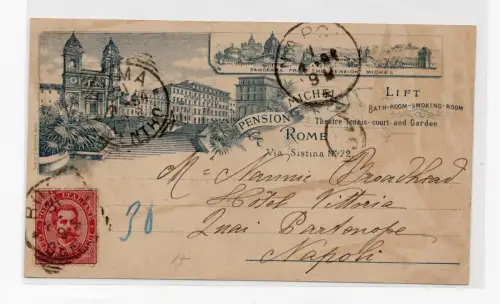 PANORAMA FROM THE PENSION MICHEL
PENSION MICHEL
ROME
Via Sistina No 72
LIFT
BATH-ROOM-SMOKING-ROOM
Theatre Tennis-court and Garden.
Nannie Broadhead
Hôtel Vittoria
Quai Partenope
Napoli
30
ROMA